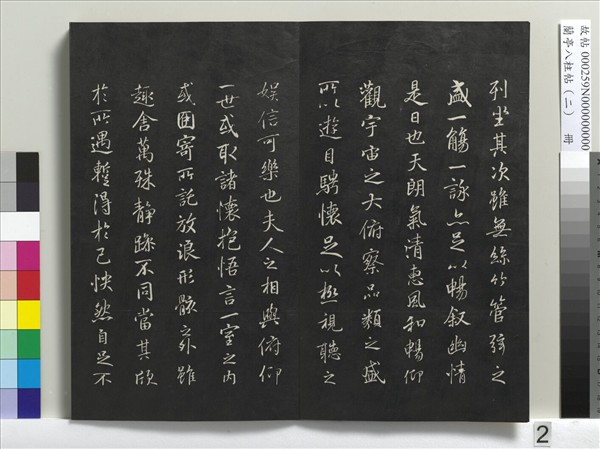 列坐其次雖無絲竹管弦之
盛一觴一詠亦足以暢叙幽情
是日也天朗氣清惠風和暢仰
觀宇宙之大俯察品類之盛
所以遊目騁懷足以極視聽之
娛信可樂也夫人之相與俯仰
一世或取諸懷抱悟言一室之內
或因寄所託放浪形骸之外雖
趣舍萬殊靜躁不同當其欣
於所遇暫得於己怏然自足不
故帖 000259N000000000
蘭亭八柱帖（二） 冊
2